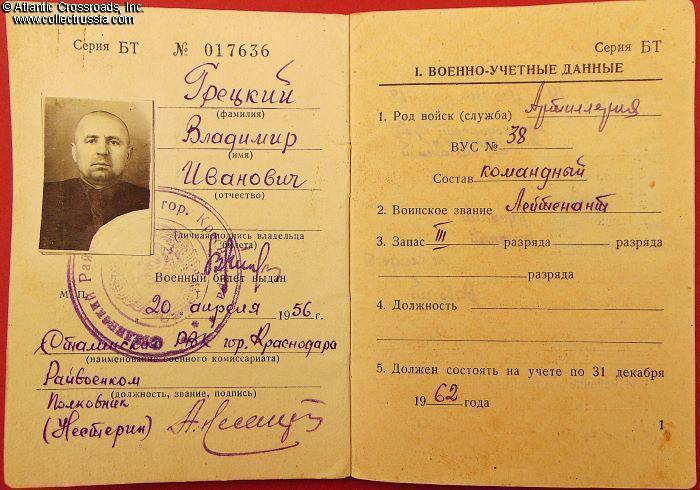 © Atlantic Crossroads, Inc.
www.collectrussia.com
Серия БТ № 017636
Грецкий
(фамилия)
Владимир
(имя)
Иванович
(отчество)
(личная подпись владельца
билета)
Военный билет выдан
М. П.
20 апреля 1956 г.
Сталинский РВК гор. Краснодара
(наименование военного комиссариата)
Райвоенком
(должность, звание, подпись)
Полковник
(Нестерин)
Серия БТ
I. ВОЕННО-УЧЕТНЫЕ ДАННЫЕ
1. Род войск (служба) Артиллерия
ВУС № 38
Состав командный
2. Воинское звание Лейтенант
3. Запас III разряда разряда
разряда
4. Должность
5. Должен состоять на учете по 31 декабря
1962 года
1